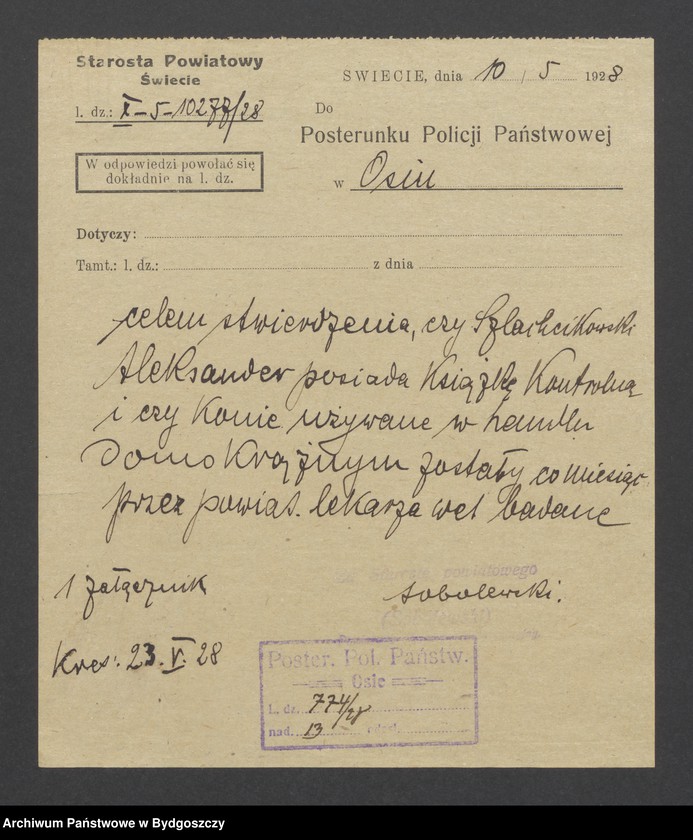 Starosta Powiatowy
Świecie
l. dz.: X-5-10277/28
W odpowiedzi powołać się
dokładnie na l. dz.
SWIECIE, dnia 10 / 5 1928
Do
Posterunku Policji Państwowej
w Osiu
Dotyczy:
Tamt.: l. dz.: z dnia
celem stwierdzenia, czy Szlachcikowski
Aleksander posiada Książkę Kontrolną
i czy Konie używane w handlu
Domokrążnym zostały co miesiąc
przez powiat. lekarza wet badane
1 załącznik
powiatowego
Sobolewski.
Kres: 23.V.28
Poster. Pol. Państw.
Osie
L. dz. 774/28
nad. 13 odesł.
Archiwum Państwowe w Bydgoszczy